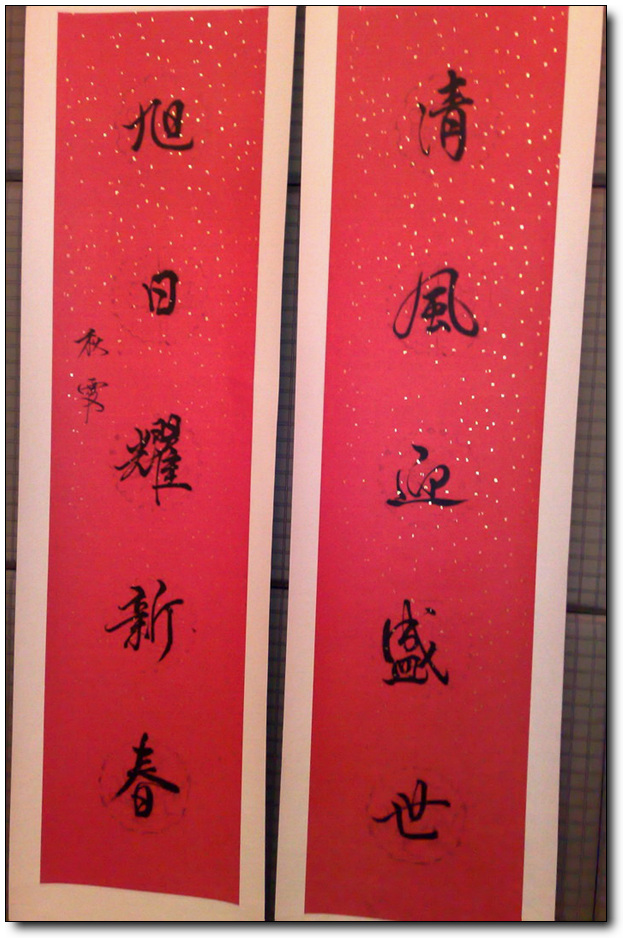 清風迎盛世
旭日耀新春
秋雯